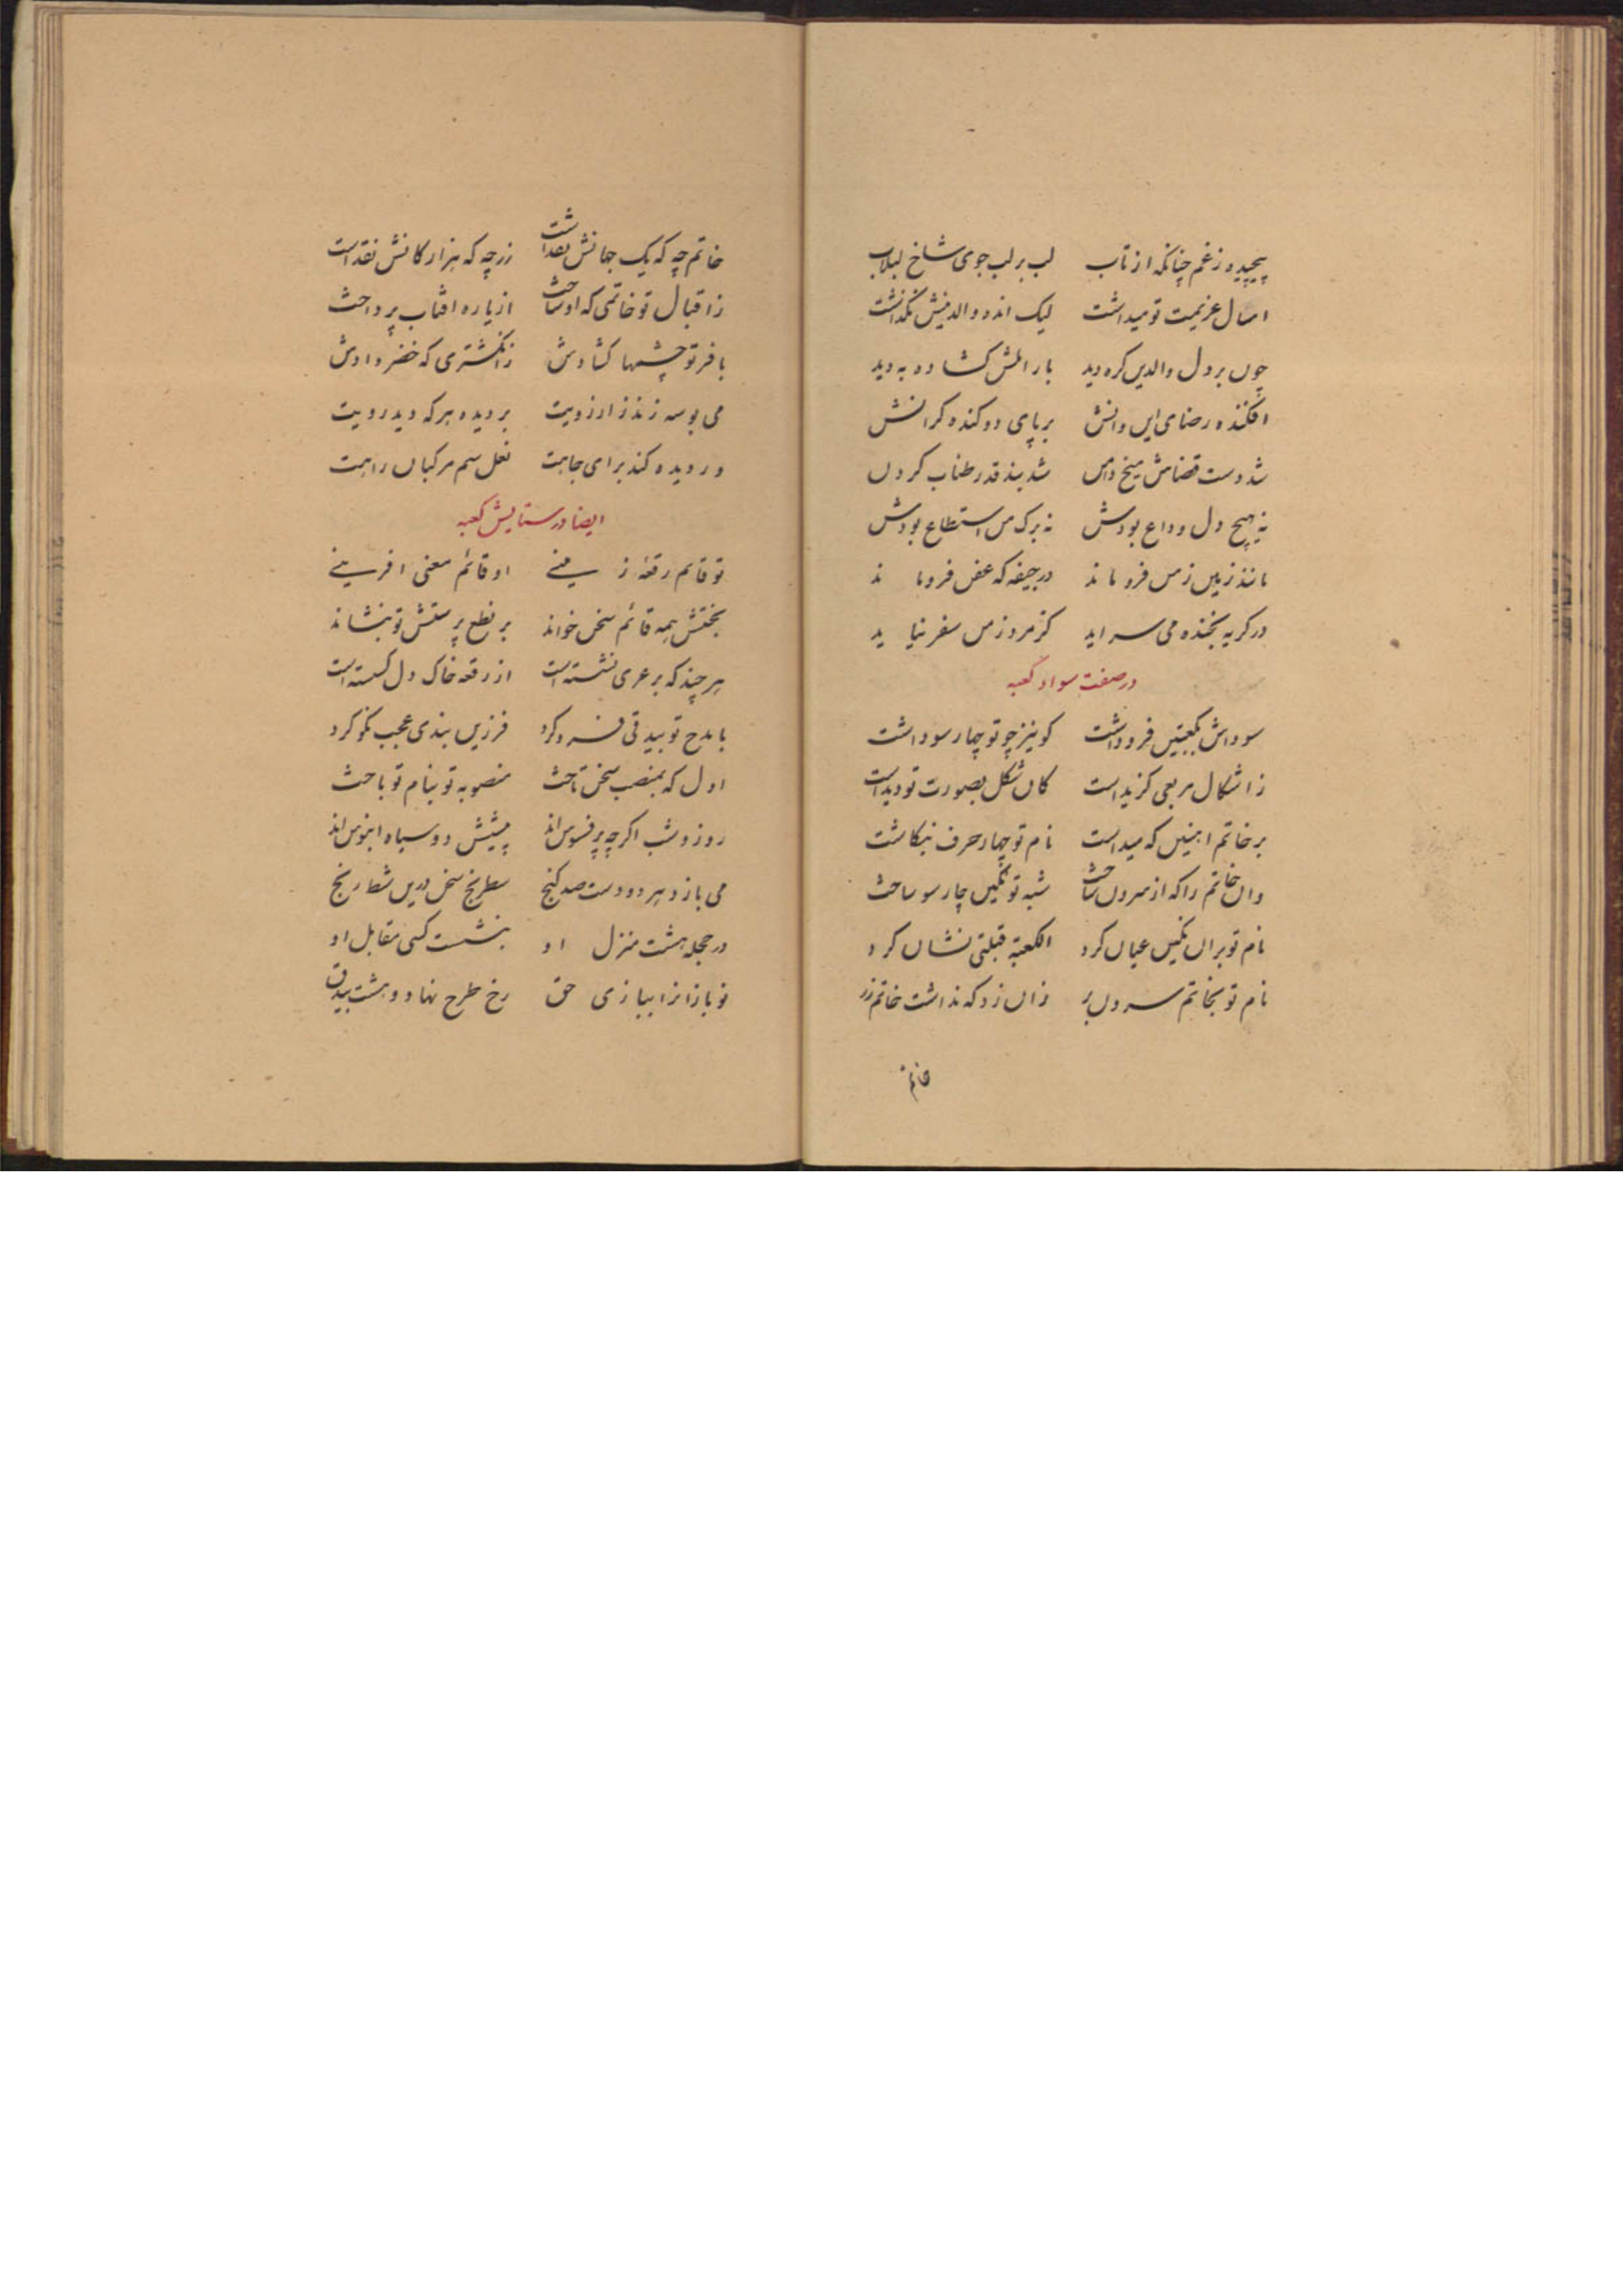 پیچیده ز غم چنانکه از تاب لب بر لب جوی شاخ لبلاب
امسال عزیمت تو میداشت لیک انده والدینش نگذاشت
چون بر دل والدین کره دید بار المش کشاده به دید
افکنده رضای این و انش بر پای دو کنده کرانش
شد دست قضاش میخ دامن شد بند قدر طناب کردن
نه هیچ دل وداع بودش نه برک من استطاع بودش
مانند زمین زمن فرو ماند در جیفه که عفن فرو ماند
در کریه بخنده می سراید کز مرد زمن سفر نیاید
در صفت سواد کعبه
سوداش بکعبتین فرو داشت کو نیز چو تو چهار سو داشت
ز اشکال مربعی کزیداست کان شکل بصورت تو دیداست
بر خاتم اهنین که میداست نام تو چهار حرف بنکاشت
وان خاتم را که از سرون ساخت شبه تو نکین چار سو ساخت
نام تو بران نکین عیان کرد الکعبة قبلتی نشان کرد
نام تو بخاتم سرون بر زان زد که نداشت خاتم زر
خاتم
خاتم چه که یک جهانش نقداشت زر چه که هزار کانش نقداست
ز اقبال تو خاتمی که او ساخت از یاره افتاب پرداخت
با فر تو چشمها کشادش ز انکشتری که خضر دادش
می بوسه زند ز ارزویت بر دیده هر که دید رویت
در دیده کند برای جاهت نعل سم مرکبان راهت
ایضا در ستایش کعبه
تو قایم رقعه زمینی او قائم معنی افرینی
بختش همه قائم سخن خواند بر نطع پرستش تو بنشاند
هر چند که بر عری نشسته است از رقعه خاک دل کسسته است
با مدح تو بیدقی فرو کرد فرزین بندی عجب نکو کرد
اول که بمنصب سخن تاخت منصوبه تو بنام تو باخت
روز و شب اکرچه پر فسوس اند پیشش دو سیاه ابنوس اند
می بازد هر دو دست صد کنج سطرنج سخن درین شطارنج
در حجله هشت منزل او ننشست کسی مقابل او
نو بازانرا ببازی حق رخ طرح نهاد و هشت بیدق